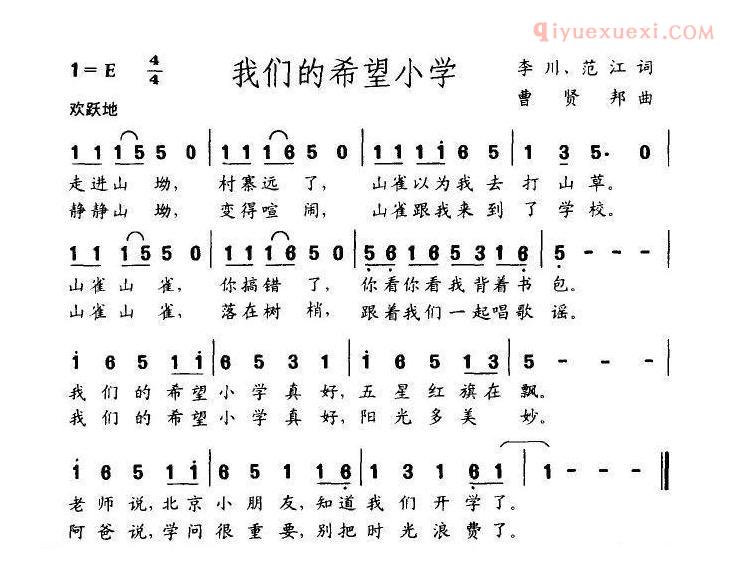 qiyuexuexi.com
1=E 4/4 我们的希望小学 李川、范江词
欢跃地 曹贤邦曲
1 1 1 5 5 0 | 1 1 1 6 5 0 | 1 1 1 i 6 5 | 1 3 5· 0 |
走进山坳, 村寨远了, 山雀以为我去打山草。
静静山坳, 变得喧闹, 山雀跟我来到了学校。
1 1 1 5 5 0 | 1 1 1 6 5 0 | 5 6 1 6 5 3 1 6 | 5 - - - |
山雀山雀, 你搞错了, 你看你看我背着书包。
山雀山雀, 落在树梢, 跟着我们一起唱歌谣。
i 6 5 1 i | 6 5 3 1 | i 6 5 1 3 | 5 - - - |
我们的希望小学真好,五星红旗在飘。
我们的希望小学真好,阳光多美妙。
i 6 5 1 i | 6 5 1 1 6 | 1 6 1 3 6 1 | 1 - - - ‖
老师说,北京小朋友,知道我们开学了。
阿爸说,学问很重要,别把时光浪费了。